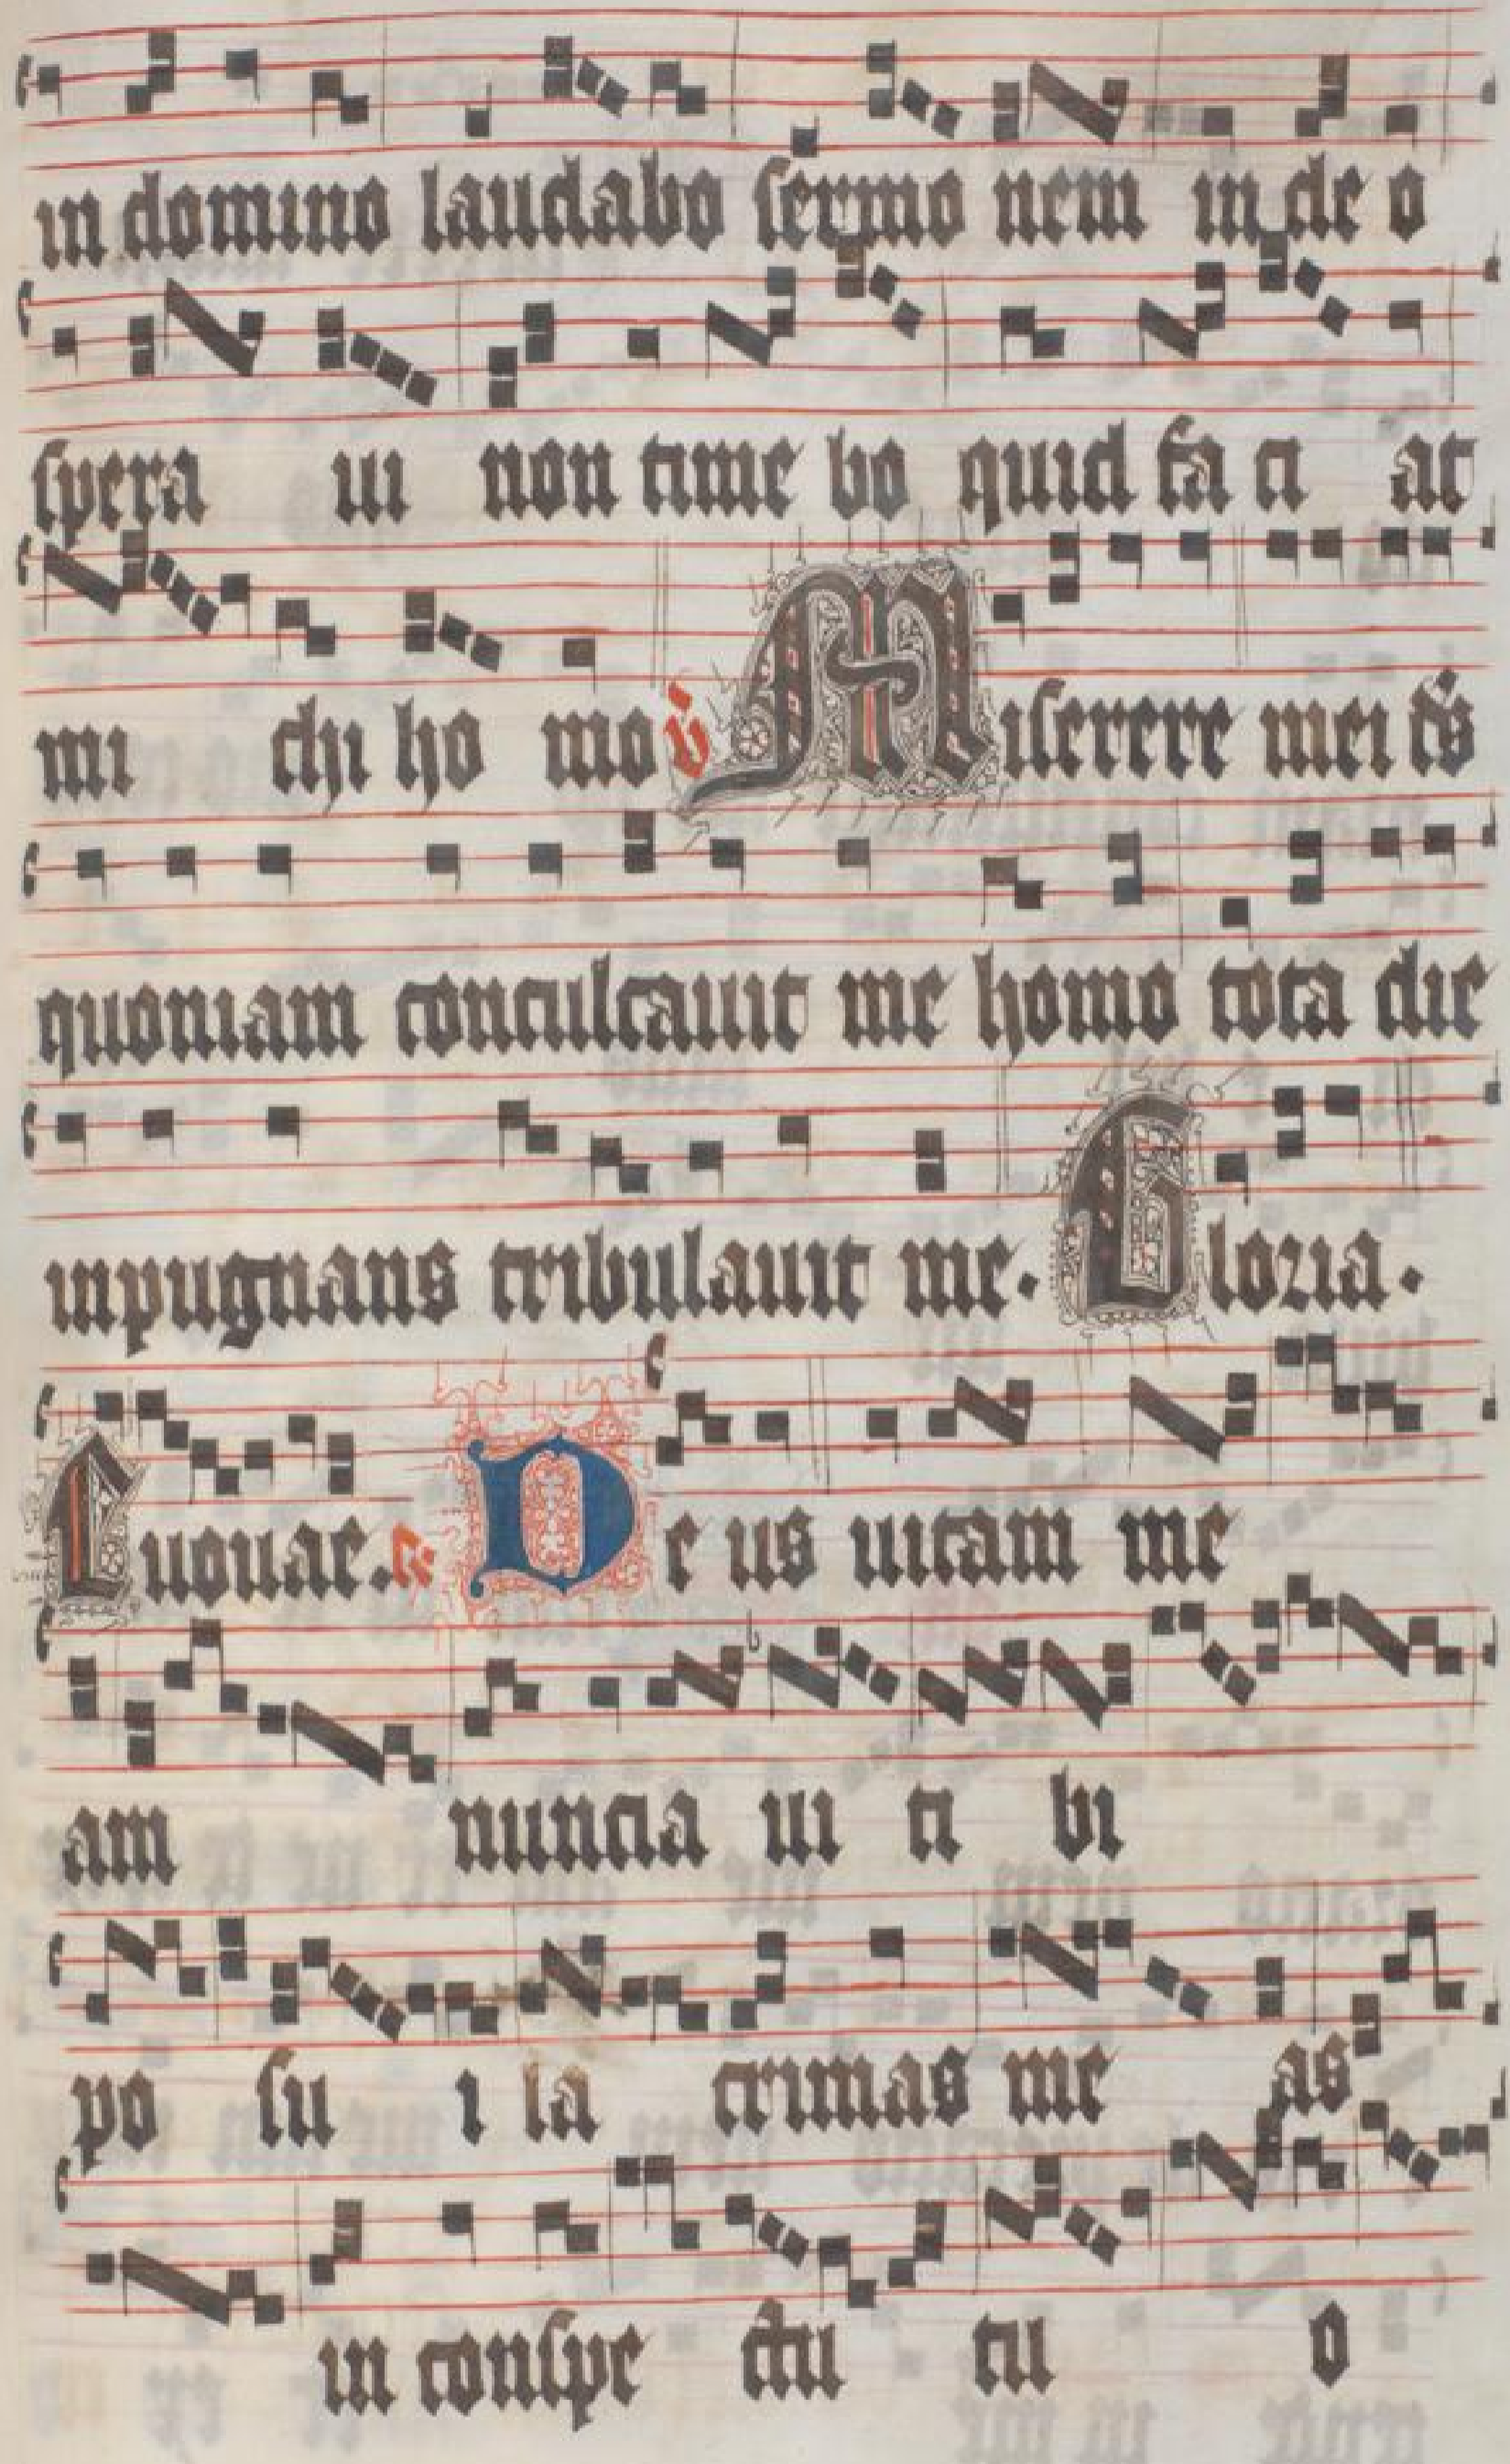 in domino laudabo sermo nem in de o
spera ui non time bo quid fa ci at
mi chi ho mo v̈ Miserere mei ds̄
quoniam conculcauit me homo tota die
inpugnans tribulauit me. Gloria.
Euouae. De us uitam me
am nuncia ui ti bi
po su i la crimas me as
in conspe ctu tu o